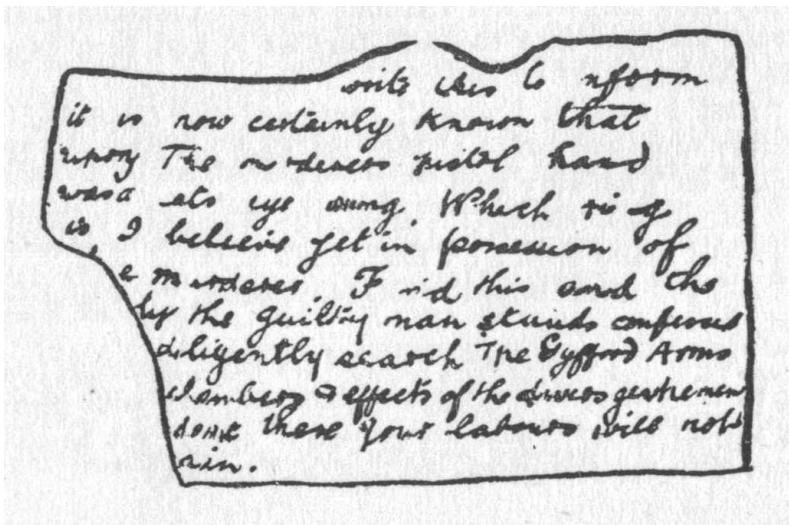 write this to nform
it is now certainly known that
upon The m rderers pistol hand
was a ets eye Which ri g
is I believe yet in possession of
e murderer. F nd this and the
ly the guilty man stands confessed
diligently search The Gyfford Arms
chambers & effects of the divers gentlemen
done there your labours will not
ain.